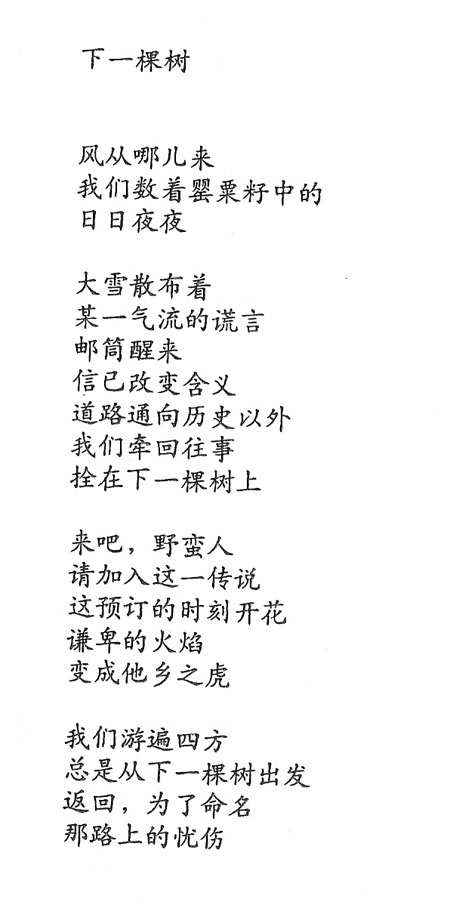 下一棵树

风从哪儿来
我们数着罂粟籽中的
日日夜夜

大雪散布着
某一气流的谎言
邮筒醒来
信已改变含义
道路通向历史以外
我们牵回往事
拴在下一棵树上

来吧，野蛮人
请加入这一传说
这预订的时刻开花
谦卑的火焰
变成他乡之虎

我们游遍四方
总是从下一棵树出发
返回，为了命名
那路上的忧伤